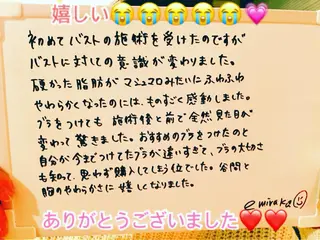 嬉しい😭😭😭😭😭💗
初めてバストの施術を受けたのですが
バストに対しての意識が変わりました。
硬かった脂肪がマシュマロみたいにふわふわ
やわらかくなったのには、ものすごく感動しました。
ブラをつけても 施術後と前で全然見た目が
変わって驚きました。おすすめのブラをつけたのと
自分が今までつけてたブラが違いすぎて、ブラの大切さ
も知って、思わず購入してしまう位でした。谷間と
胸のやわらかさに嬉しくなりました。
ありがとうございました❤❤